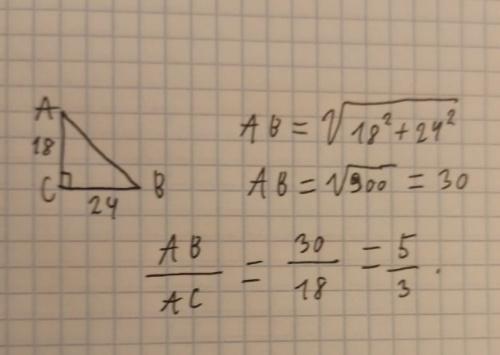 A
18
C
24
B
AB = √(18² + 24²)
AB = √900 = 30
AB/AC = 30/18 = 5/3.